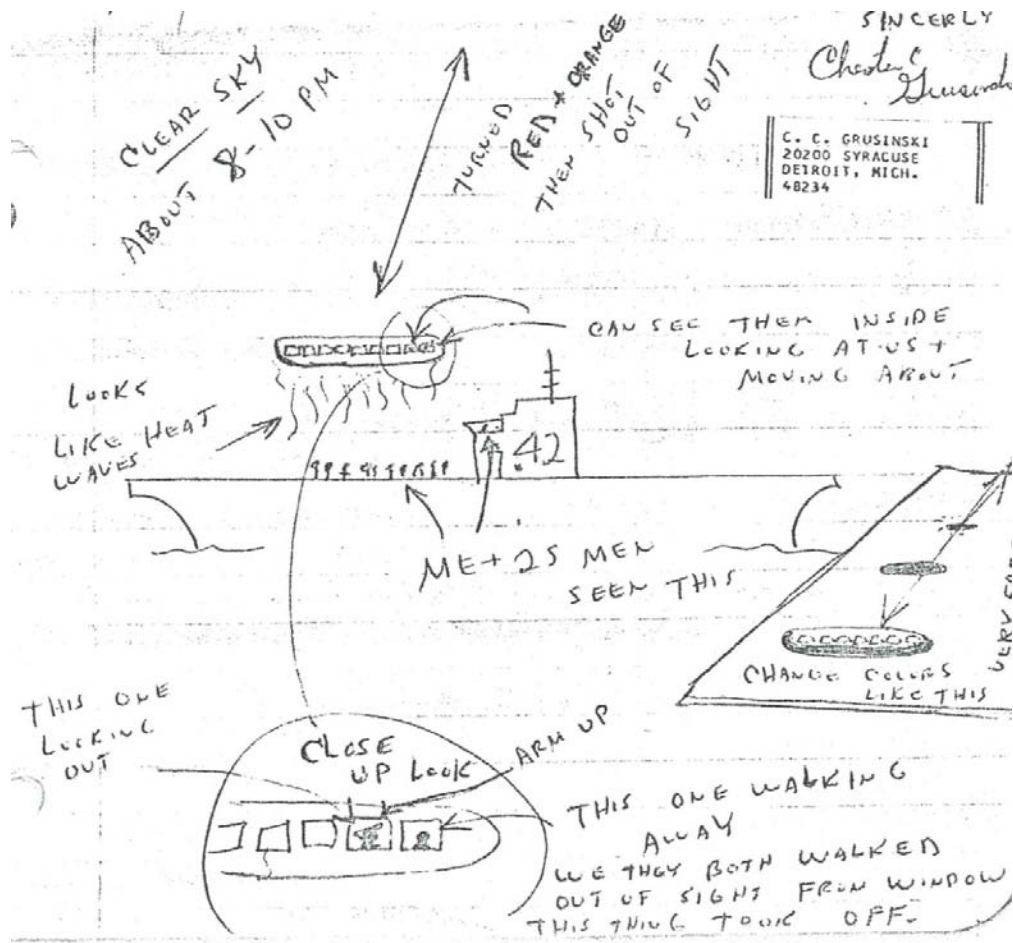 SINCERLY
C. C. GRUSINSKI
20200 SYRACUSE
DETROIT, MICH.
48234
CLEAR SKY
ABOUT 8-10 PM
TURNED
RED + ORANGE
THEN SHOT
OUT OF
SIGHT
CAN SEE THEM INSIDE
LOOKING AT US +
MOVING ABOUT
LOOKS
LIKE HEAT
WAVES
42
ME + 25 MEN
SEEN THIS
CHANGE COLORS
LIKE THIS
VERY
THIS ONE
LOOKING
OUT
CLOSE
UP LOOK
ARM UP
THIS ONE WALKING
AWAY
WE THEY BOTH WALKED
OUT OF SIGHT FROM WINDOW
THIS THING TOOK OFF.